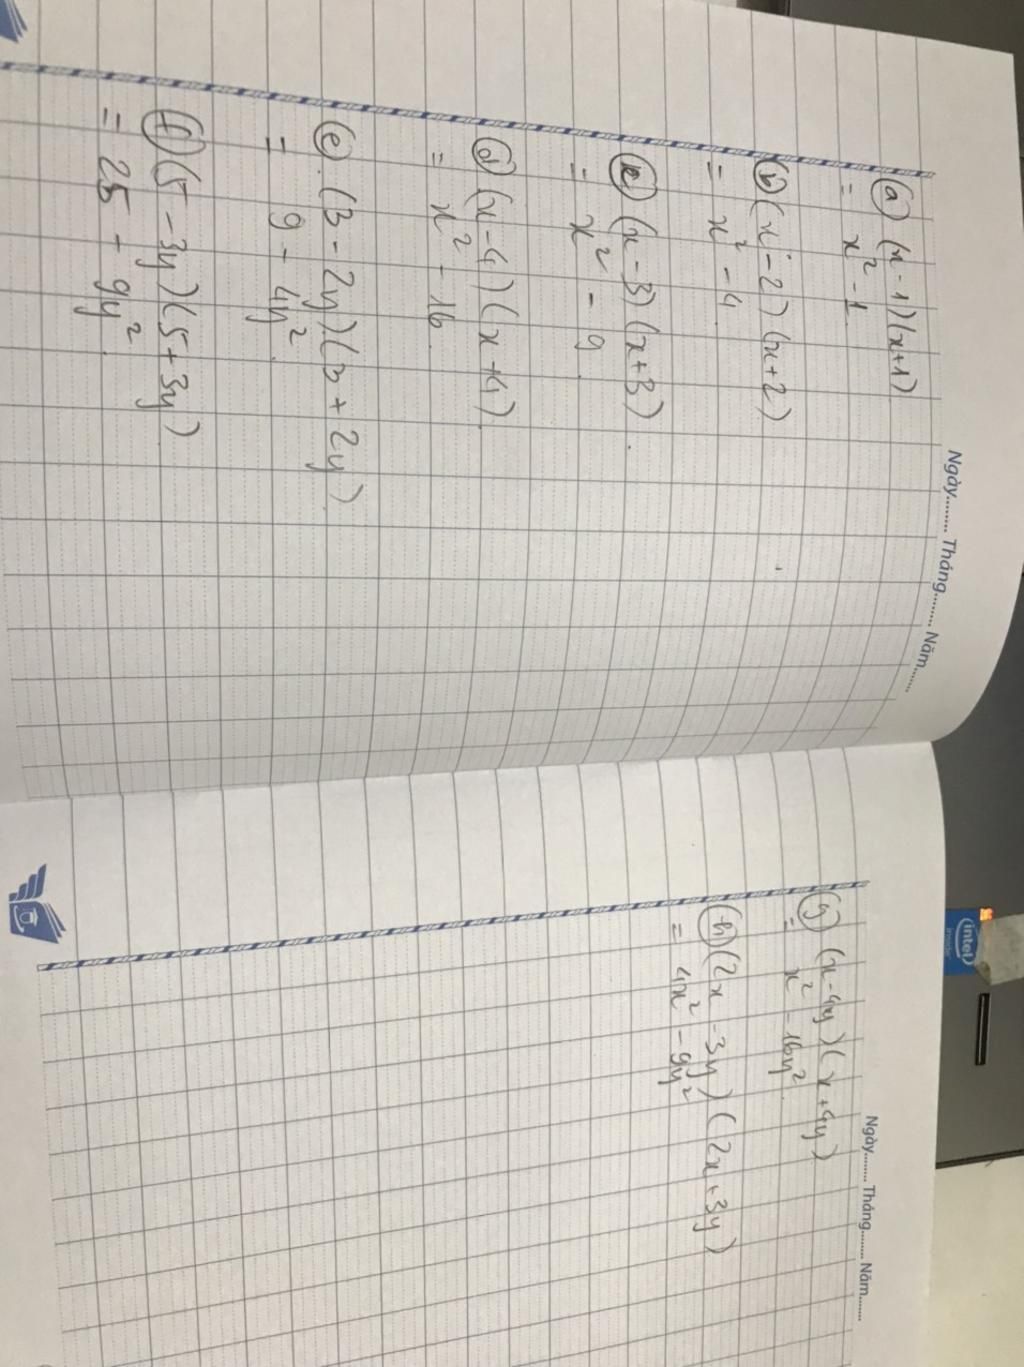 Ngày........ Tháng........ Năm........
(a) (x-1)(x+1)
= x² - 1
(b) (x-2)(x+2)
= x² - 4
(c) (x-3)(x+3).
= x² - 9
(d) (x-4)(x+4)
= x² - 16
(e) (3-2y)(3+2y)
= 9 - 4y²
(f) (5-3y)(5+3y)
= 25 - 9y²
Ngày........ Tháng........ Năm........
(g) (x-4y)(x+4y)
= x² - 16y²
(h) (2x-3y)(2x+3y)
= 4x² - 9y²
intel
inside